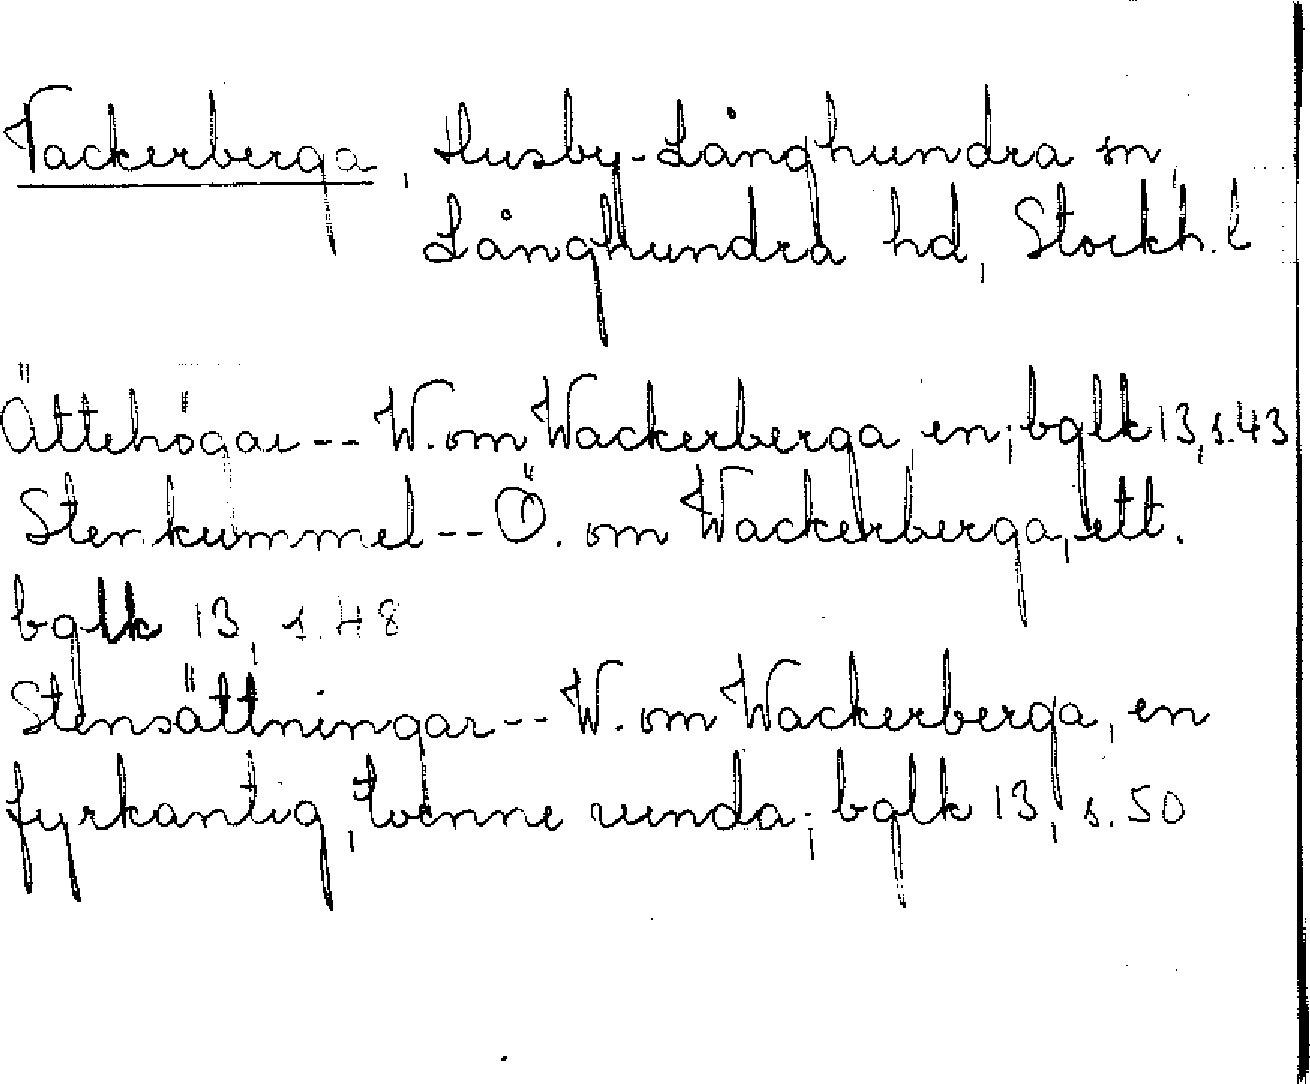 Vackerberga, Husby-Långhundra sn,
Långhundra hd, Stockh. l
Ättehögar -- W. om Wackerberga en; bglk 13, s. 43
Stenkummel -- Ö. om Wackerberga, ett.
bglk 13, s. 48
Stensättningar -- W. om Wackerberga, en
fyrkantig, tvenne runda; bglk 13, s. 50